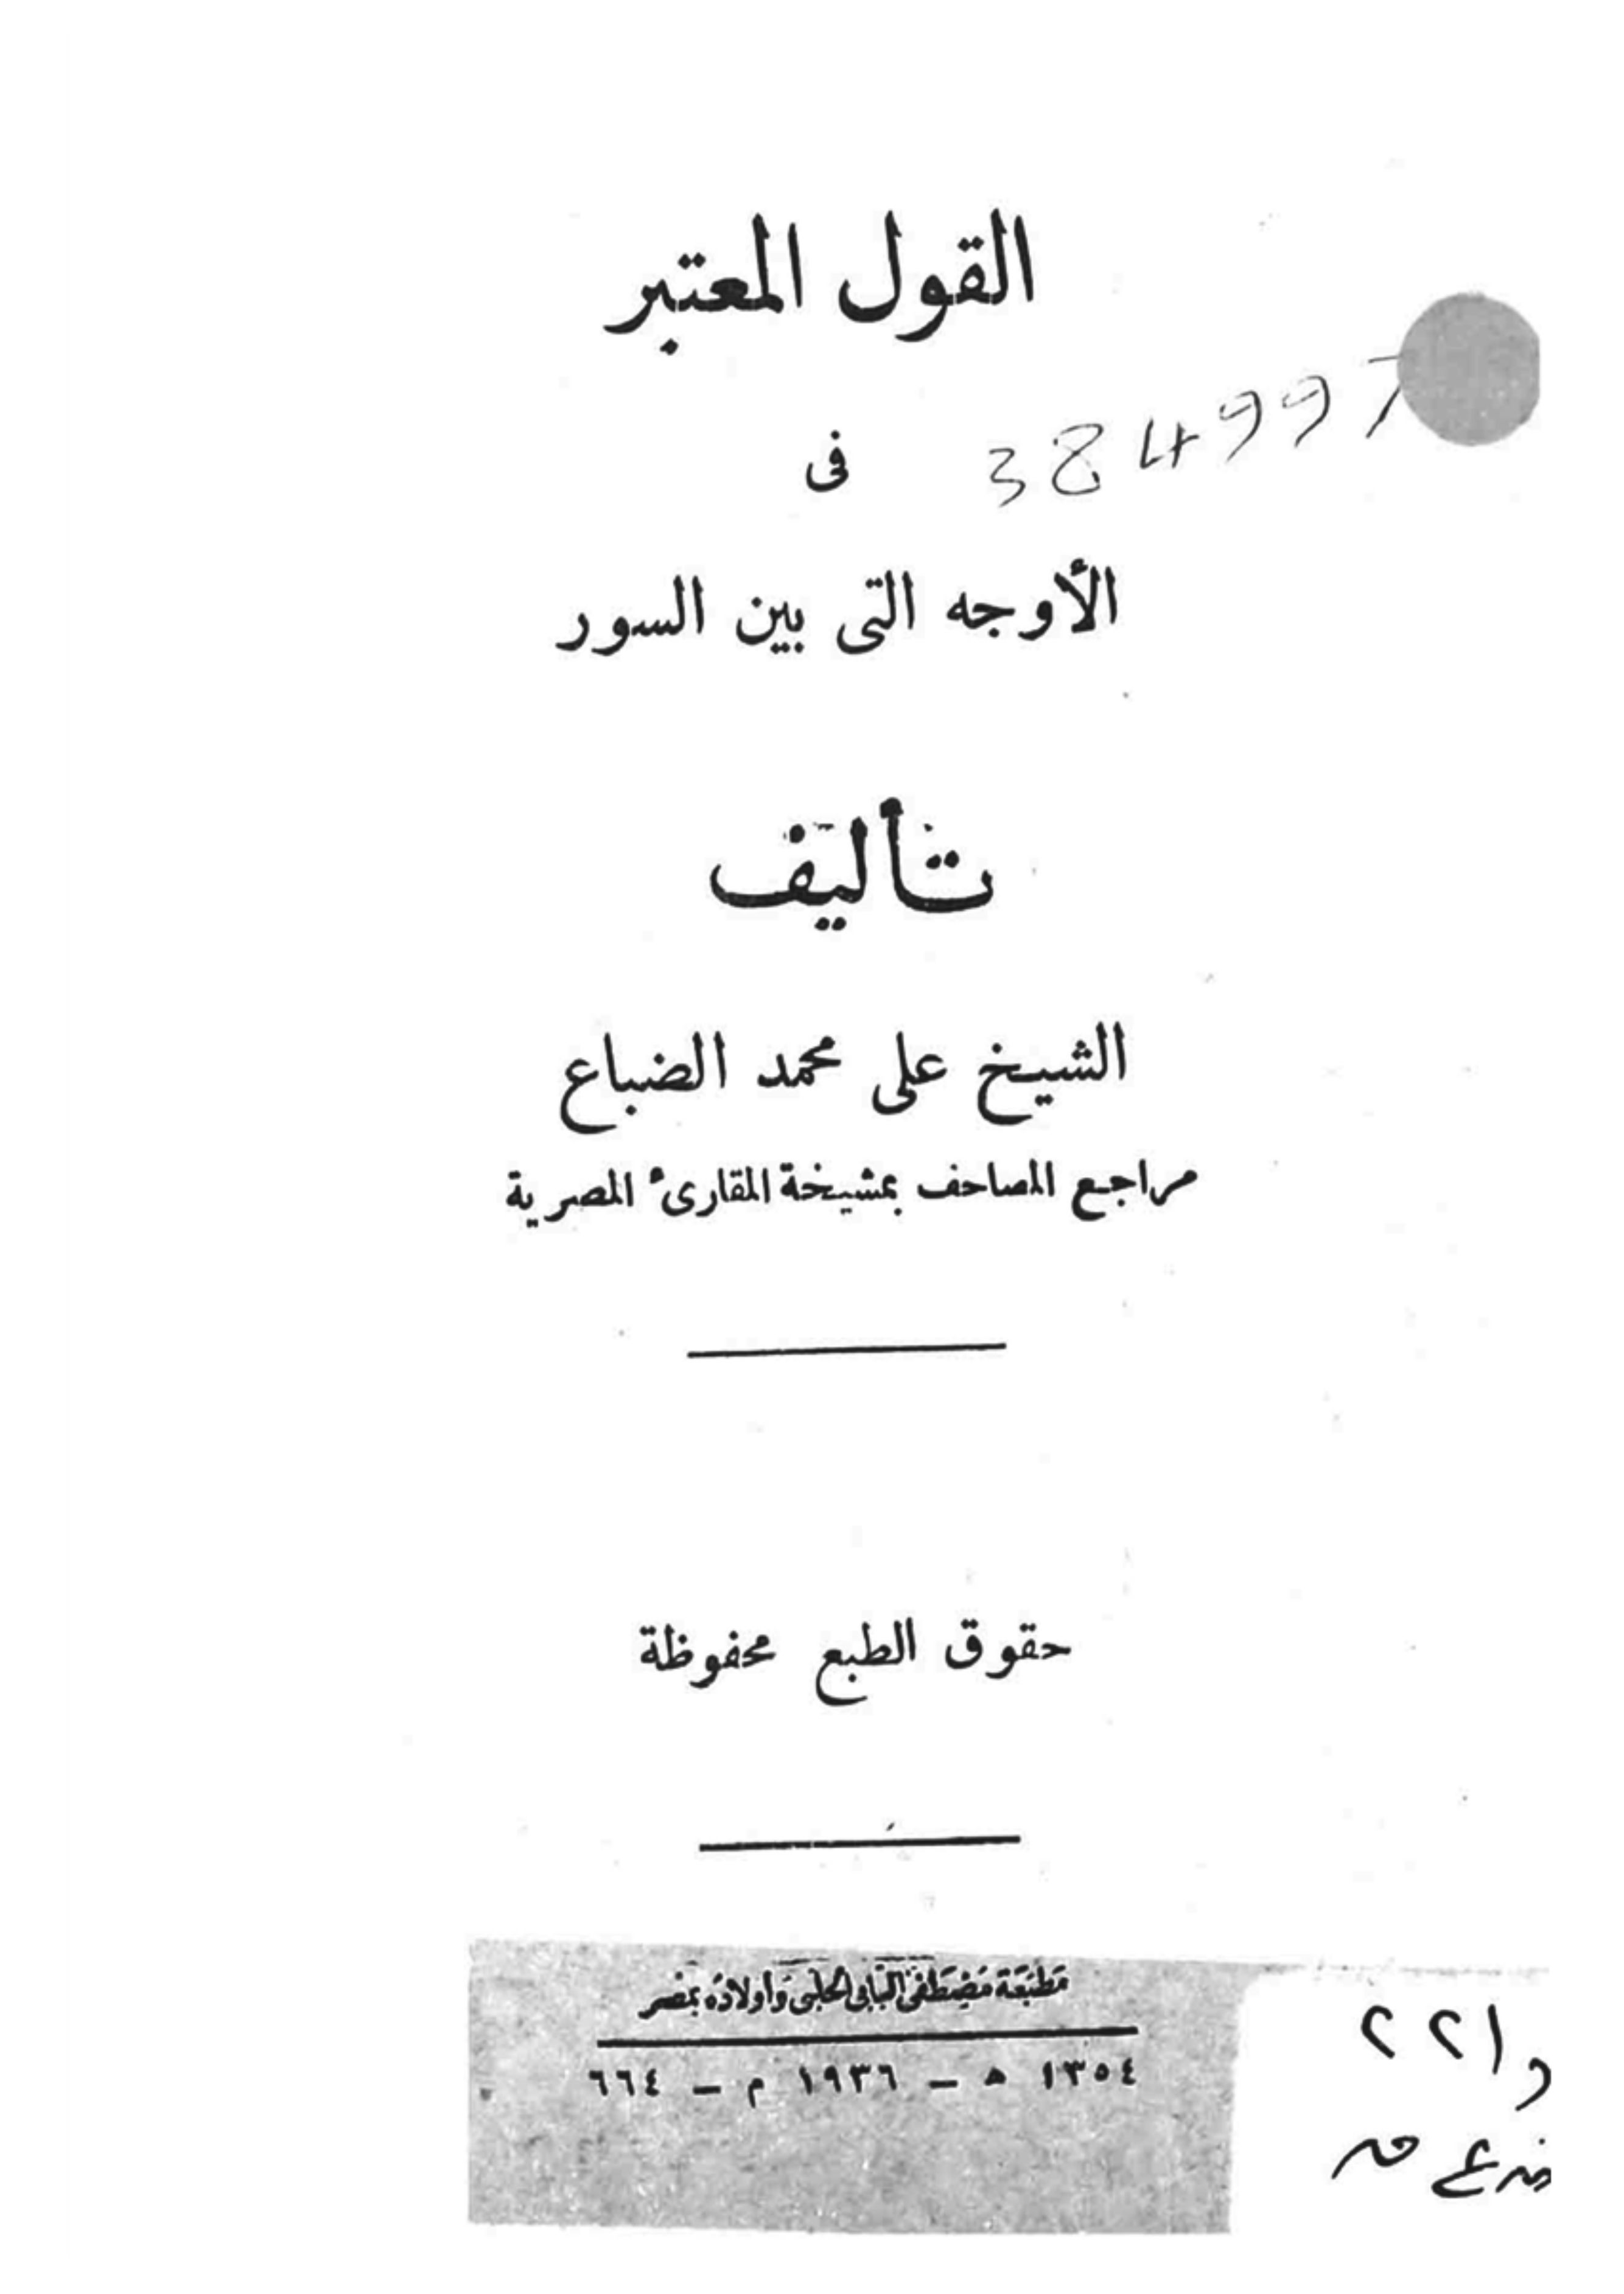 القول المعتبر
384997
فى
الأوجه التى بين السور
تأليف
الشيخ على محمد الضباع
مراجع المصاحف بمشيخة المقارئ المصرية
حقوق الطبع محفوظة
مطبعة مصطفى البابى الحلبى وأولاده بمصر
١٣٥٤ ه – ١٩٣٦ م – ٦٦٤
٢٢١